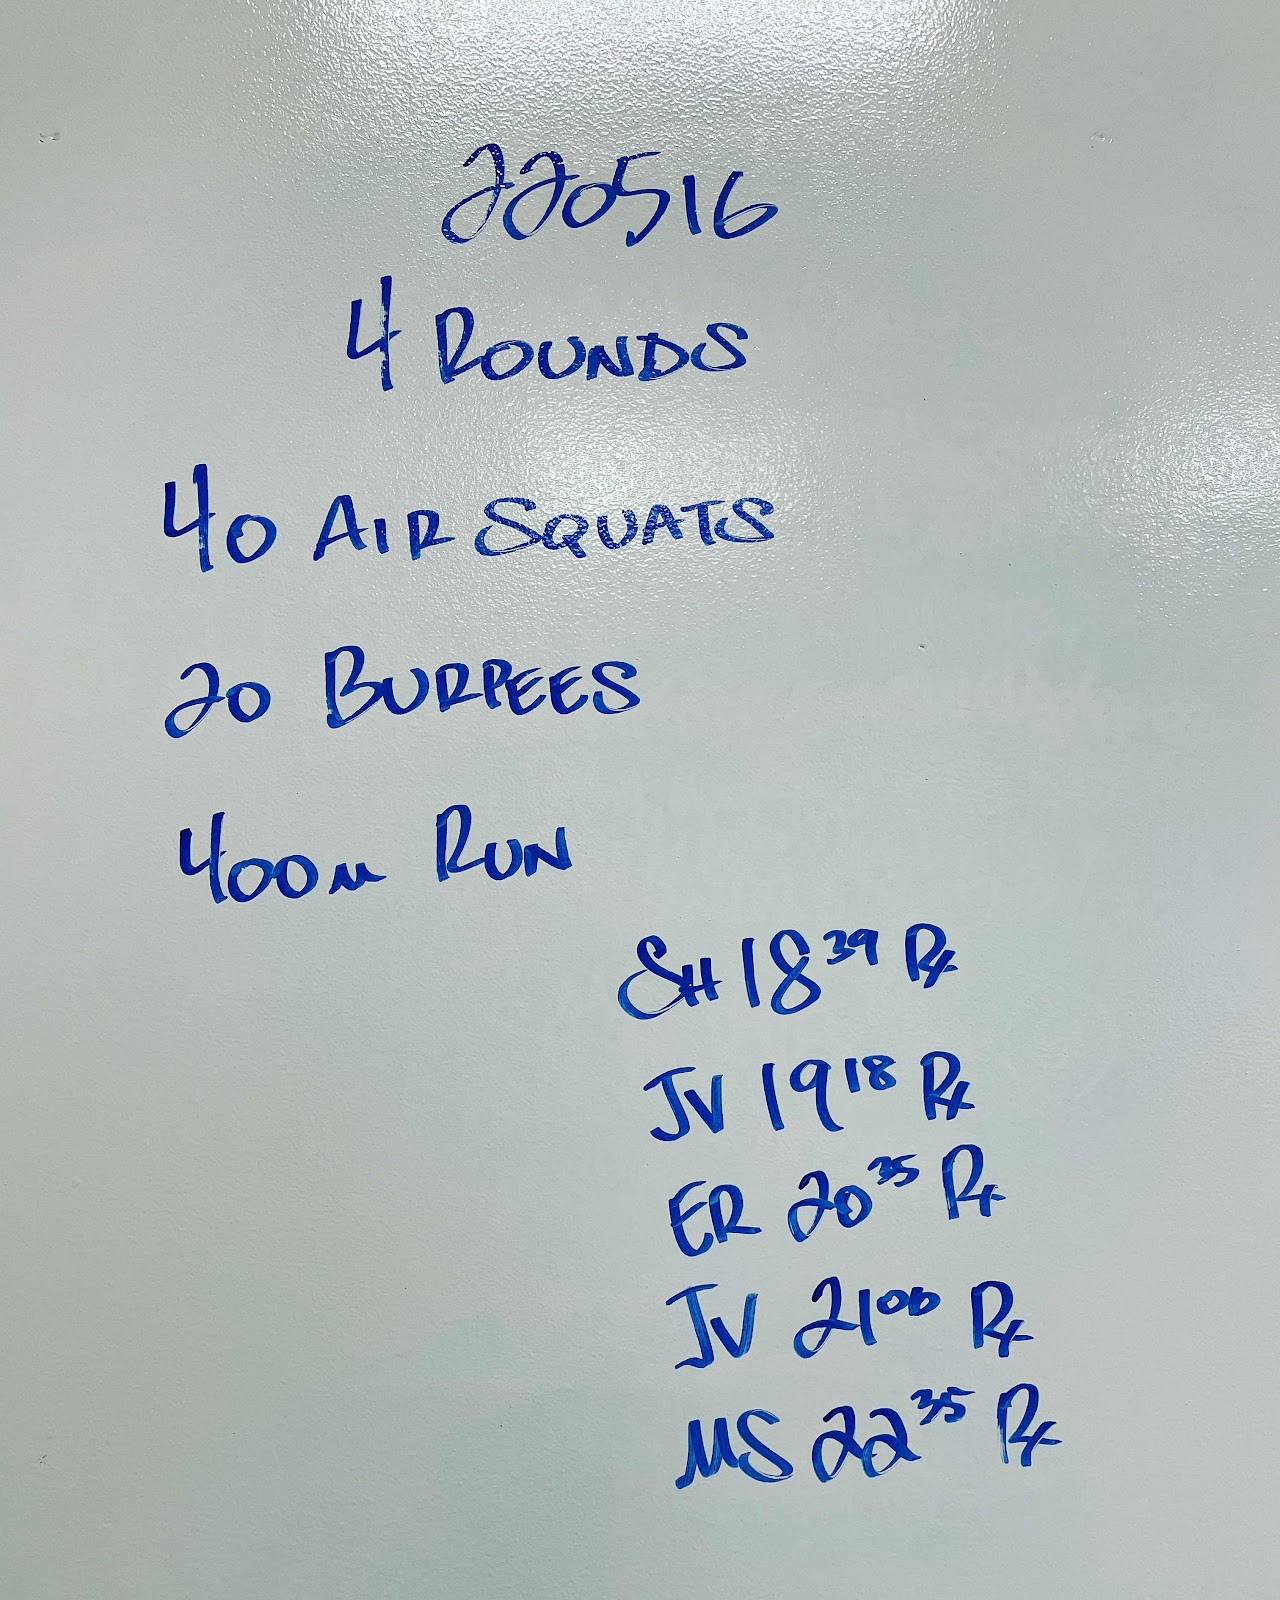 220516
4 ROUNDS
40 AIR SQUATS
20 BURPEES
400M RUN
SH 18 39 Rx
JV 19 18 Rx
ER 20 35 Rx
JV 21 00 Rx
MS 22 35 Rx